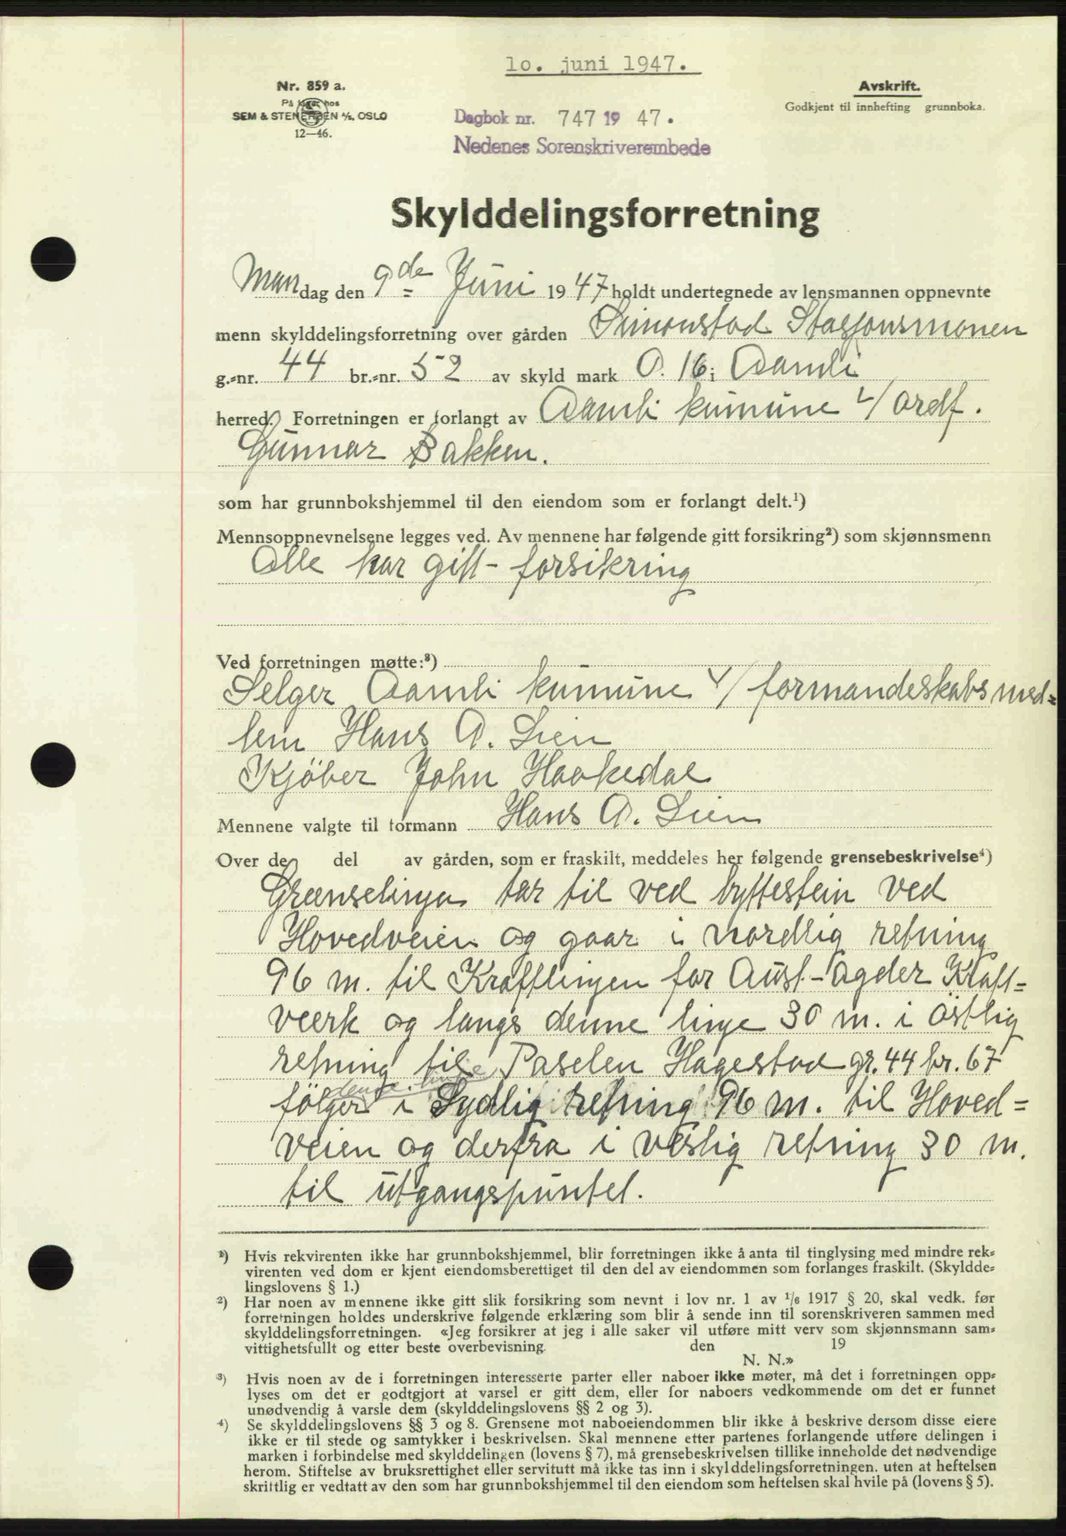 10. juni 1947.
Nr. 859 a.
På lager hos
SEM & STENERSEN A/S, OSLO
12—46.
Avskrift.
Godkjent til innhefting grunnboka.
Dagbok nr. 747 19 47.
Nedenes Sorenskriverembede
Skylddelingsforretning
Mandag den 9de Juni 1947 holdt undertegnede av lensmannen oppnevnte
menn skylddelingsforretning over gården Simonstad Stasjonsmonen
g.-nr. 44 br.-nr. 52 av skyld mark 0.16 i Aamli
herred. Forretningen er forlangt av Aamli kumune v/ ordf.
Gunnar Bakken.
som har grunnbokshjemmel til den eiendom som er forlangt delt.¹)
Mennsoppnevnelsene legges ved. Av mennene har følgende gitt forsikring²) som skjønnsmenn
Alle har gitt - forsikring
Ved forretningen møtte:³)
Selger Aamli kumune v/ formandeskabsmed=
lem Hans A. Lien
Kjöber John Haakedal
Mennene valgte til formann Hans A. Lien
Over de del av gården, som er fraskilt, meddeles her følgende grensebeskrivelse⁴)
Grænselinja tar til ved byttestein ved
Hovedveien og gaar i nordlig retning
96 m. til Kraftlinjen for Aust-Agder Kraft=
værk og langs denne linje 30 m. i östlig
retning til Paselen Hagestad gr. 44 br. 67
følger denne linje i Sydlig retning 96 m. til Hoved=
veien og derfra i vestlig retning 30 m.
til utgangspuntet.
¹) Hvis rekvirenten ikke har grunnbokshjemmel, blir forretningen ikke å anta til tinglysing med mindre rek-
virenten ved dom er kjent eiendomsberettiget til den del av eiendommen som forlanges fraskilt. (Skyldde-
lingslovens § 1.)
²) Har noen av mennene ikke gitt slik forsikring som nevnt i lov nr. 1 av 1/6 1917 § 20, skal vedk. før
forretningen holdes underskrive følgende erklæring som blir å sende inn til sorenskriveren sammen med
skylddelingsforretningen. «Jeg forsikrer at jeg i alle saker vil utføre mitt verv som skjønnsmann sam-
vittighetsfullt og etter beste overbevisning. den 19
N. N.»
³) Hvis noen av de i forretningen interesserte parter eller naboer ikke møter, må det i forretningen opp-
lyses om det er godtgjort at varsel er gitt dem, eller for naboers vedkommende om det er funnet
unødvendig å varsle dem (skylddelingslovens §§ 2 og 3).
⁴) Se skylddelingslovens §§ 3 og 8. Grensene mot naboeiendommen blir ikke å beskrive dersom disse eiere
ikke er til stede og samtykker i beskrivelsen. Skal mennene etter partenes forlangende utføre delingen i
marken i forbindelse med skylddelingen (lovens § 7), må grensebeskrivelsen tillike inneholde det nødvendige
herom. Stiftelse av bruksrettighet eller servitutt må ikke tas inn i skylddelingsforretningen. uten at heftelsen
skriftlig er vedtatt av den som har grunnbokshjemmel til den eiendom som heftelsen skal hvile på (lovens § 5).